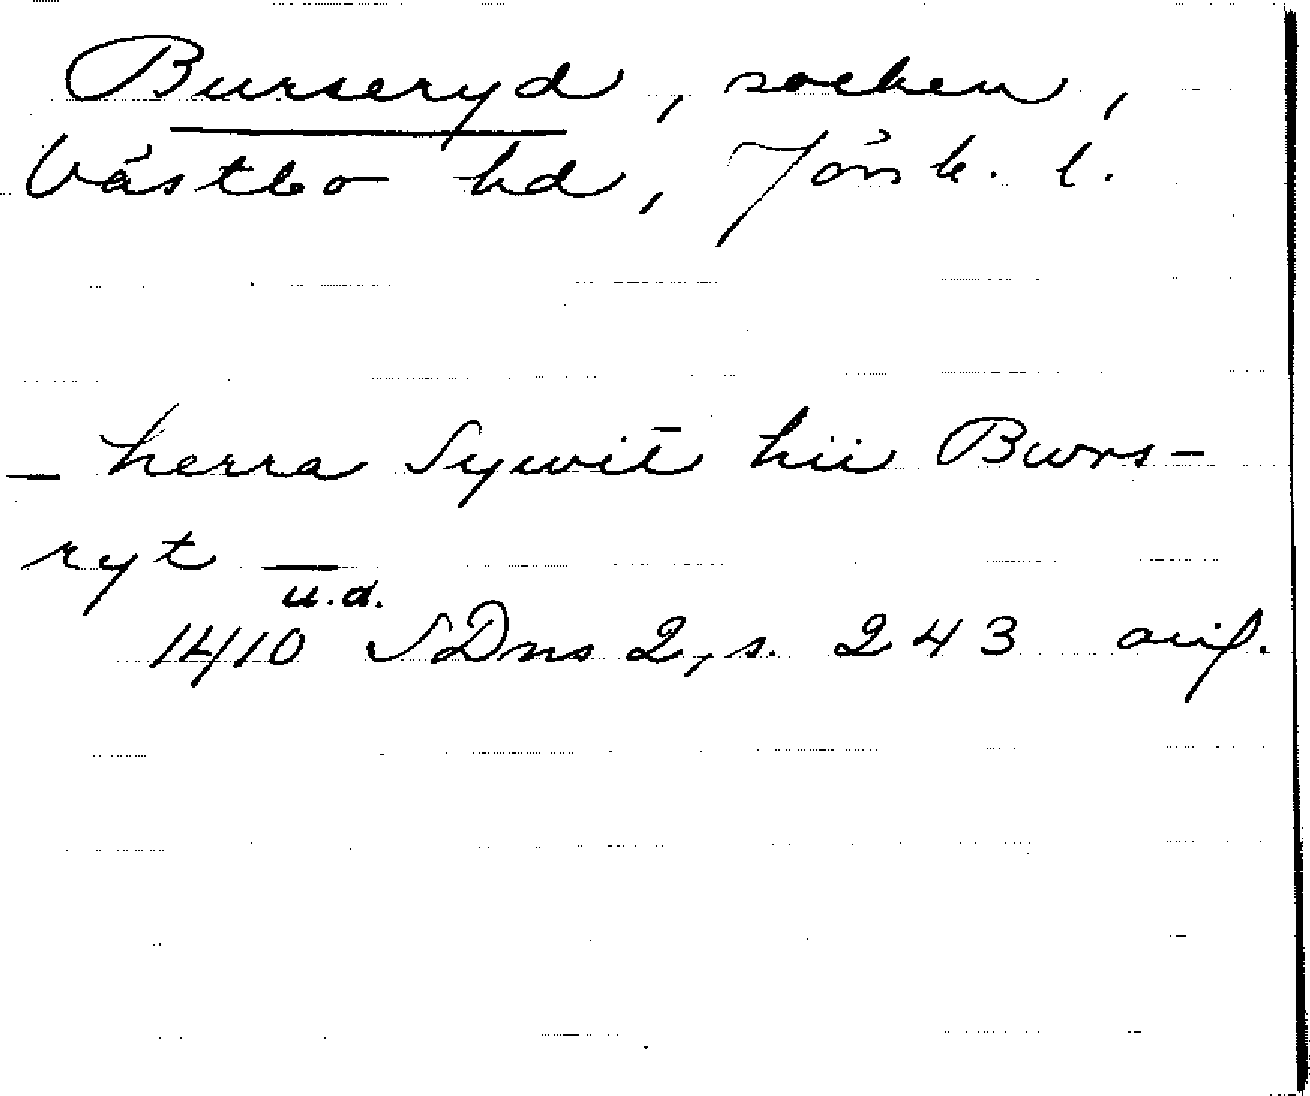 Burseryd, socken,
Västbo hd, Jönk. l.
— herra Sywit hii Bwrs-
ryt —
u.d.
1410 SDns 2, s. 243 avf.